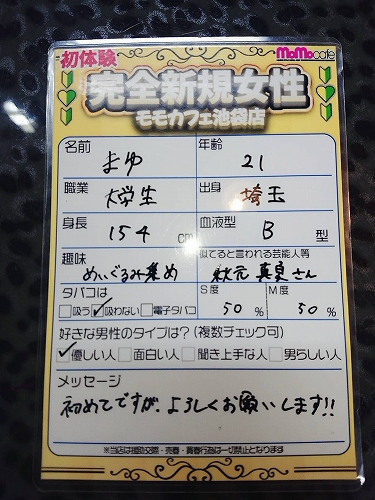 初体験 MoMocafe
完全新規女性
モモカフェ池袋店
名前 まゆ 年齢 21
職業 大学生 出身 埼玉
身長 154 cm 血液型 B 型
趣味 似てると言われる芸能人等
ぬいぐるみ集め 秋元 真夏さん
タバコは S度 M度
吸う 吸わない 電子タバコ 50 % 50 %
好きな男性のタイプは？(複数チェック可)
優しい人 面白い人 聞き上手な人 男らしい人
メッセージ
初めてですが、よろしくお願いします!!
※当店は援助交際・売春・買春行為は一切禁止となります